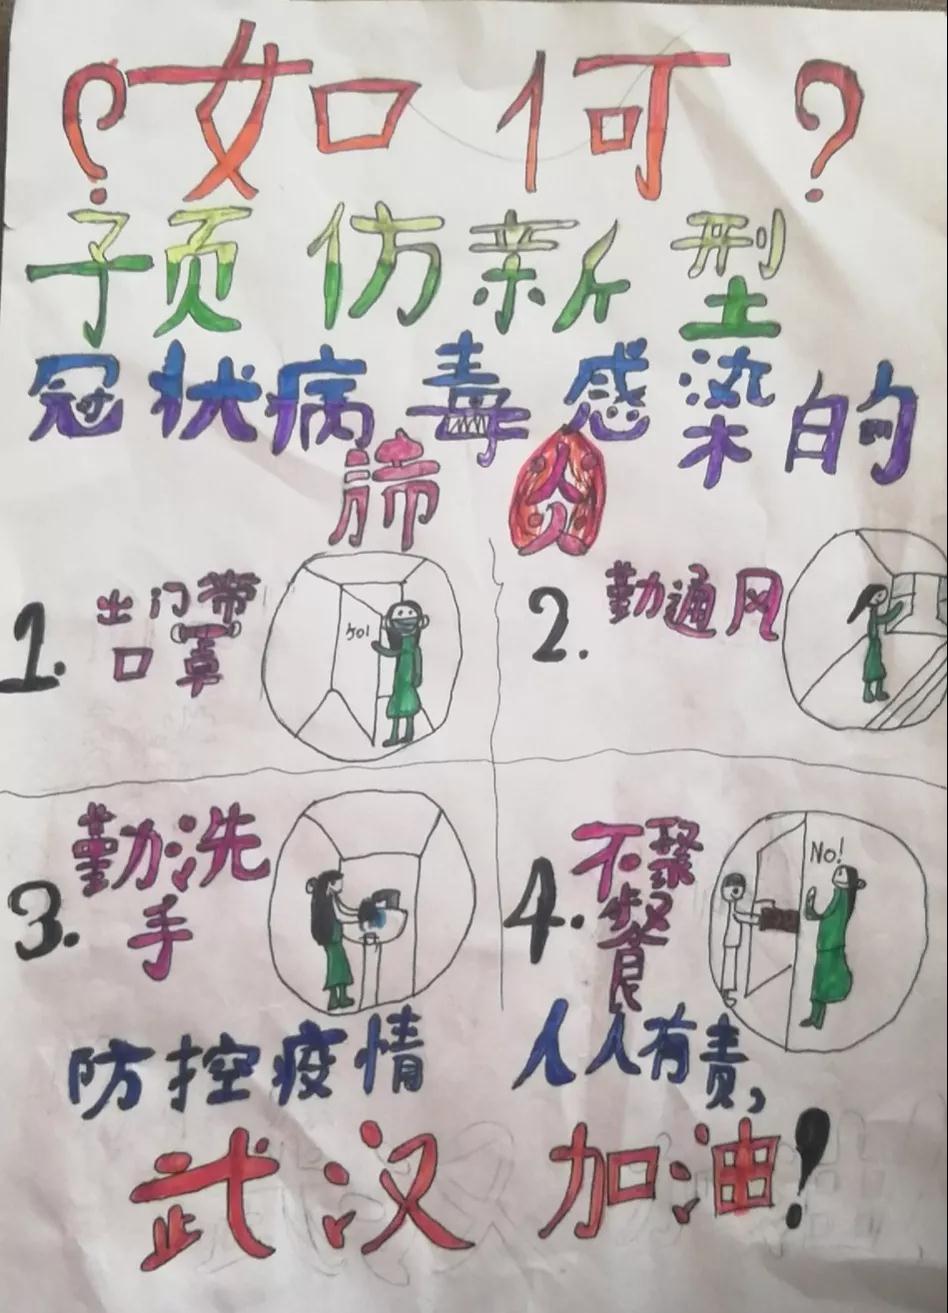 ?如何?
预仿新型
冠状病毒感染的
肺炎
1.出门带
口罩
go!
2.勤通风
3.勤洗
手
4.不聚
餐
No!
防控疫情 人人有责,
武汉 加油!